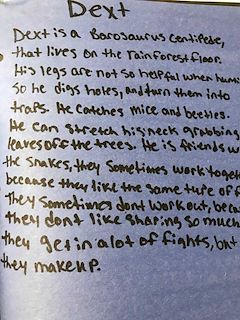 Dext
Dext is a Barosaurus centipede,
that lives on the rainforest floor.
His legs are not so helpful when hunti
so he digs holes, and turn them into
traps. He catches mice and beetles.
He can stretch his neck grabbing
leaves off the trees. He is friends w
the snakes, they sometimes work togeth
because they like the same type of f
They sometimes dont work out, beca
they dont like sharing so much
they get in a lot of fights, but
they make up.